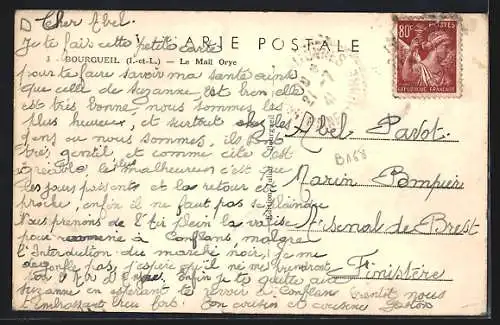 Cher Abel.
CARTE POSTALE
Je te fais cette petite carte
3 - BOURGUEIL (I.-et-L.) — Le Mail Orye
pour te faire savoir ma santé ainsi
que celle de Suzanne est bien elle
est très bonne nous sommes les
plus heureux, et surtout chez les
gens ou nous sommes, ils sont
très gentil et comme cite s'est
agréable, plus malheureux c'est que
les jours passent et la retour est
proche, enfin il ne faut pas se plaindre
Nous prenons de l'air plein la valise
pour ramener à Conflans malgré
l'Interdiction du marché noir, je me
gonfle pas, j'espère qu'il ne me prendront
Enfin je te quitte avec
Suzanne en espérant te revoir à Conflans bientôt nous
t'embrassons bien fort. Ton cousin et cousine Gaston
80c
POSTES
REPUBLIQUE FRANÇAISE
Abel Pavot.
Marin Pompier
Arsenal de Brest
Finistère
B168